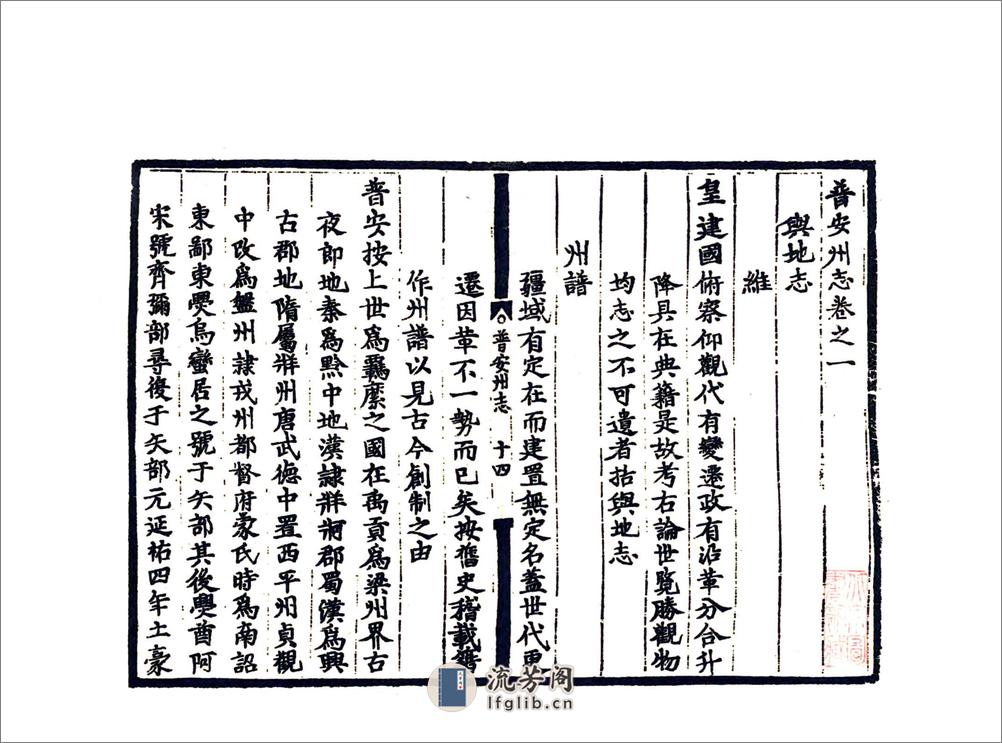 普安州志卷之一
輿地志
維
皇建國俯察仰觀代有變遷政有沿革分合升
降具在典籍是故考右論世覽勝觀物
均志之不可遺者括輿地志
州譜
疆域有定在而建置無定名蓋世代更
遷因革不一勢而已矣按舊史稽載籍
作州譜以見古今創制之由
普安州志 十四
普安按上世爲羈縻之國在禹貢爲梁州界古
夜郎地秦爲黔中地漢隸牂牁郡蜀漢爲興
古郡地隋屬牂州唐武德中置西平州貞觀
中改爲盤州隸戎州都督府蒙氏時爲南詔
東鄙東爨烏蠻居之號于矢部其後爨酋阿
宋號齊彌部尋復于矢部元延祐四年土豪
流芳阁
lfglib.cn